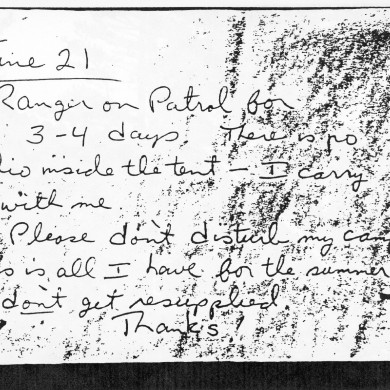 June 21
Ranger on Patrol for
3-4 days. There is no
radio inside the tent - I carry
with me
Please don't disturb my camp
is all I have for the summer
don't get resupplied
Thanks